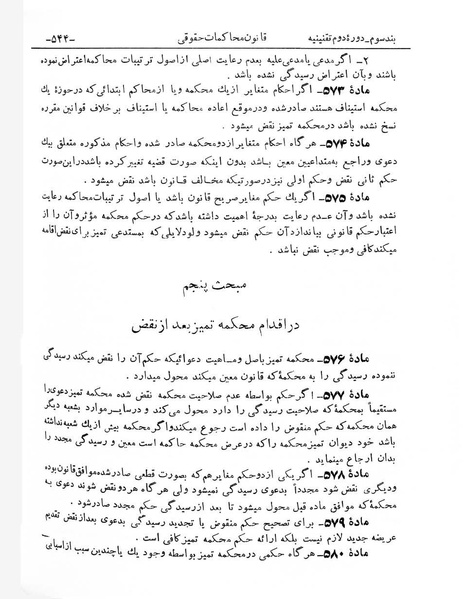 بند سوم_دورهٔ دوم تقنینیه
قانون محاکمات حقوقی
-۵۴۴-
۲- اگر مدعی یا مدعی علیه بعدم رعایت اصلی از اصول ترتیبات محاکمه اعتراض نموده
باشند و بآن اعتراض رسیدگی نشده باشد .
مادهٔ ۵۷۳- اگر احکام متغایر از یك محکمه و یا از محاکم ابتدائی که در حوزهٔ یك
محکمه استیناف هستند صادر شده و در موقع اعاده محاکمه یا استیناف بر خلاف قوانین مقرره
نسخ نشده باشد در محکمه تمیز نقض میشود .
مادهٔ ۵۷۴- هر گاه احکام متغایر از دو محکمه صادر شده و احکام مذکوره متعلق بیك
دعوی و راجع بمتداعیین معین باشد بدون اینکه صورت قضیه تغییر کرده باشد در این صورت
حکم ثانی نقض و حکم اولی نیز در صورتیکه مخالف قانون باشد نقض میشود .
مادهٔ ۵۷۵- اگر یك حکم مغایر صریح قانون باشد یا اصول ترتیبات محاکمه رعایت
نشده باشد و آن عدم رعایت بدرجهٔ اهمیت داشته باشد که در حکم محکمه مؤثر و آن را از
اعتبار حکم قانونی بیاندازد آن حکم نقض میشود ولو دلایلی که مستدعی تمیز برای نقض اقامه
میکند کافی و موجب نقض نباشد .
مبحث پنجم
در اقدام محکمه تمیز بعد از نقض
مادهٔ ۵۷۶- محکمه تمیز باصل و ماهیت دعوائیکه حکم آن را نقض میکند رسیدگی
ننموده رسیدگی را به محکمهٔ که قانون معین میکند محول میدارد .
مادهٔ ۵۷۷- اگر حکم بواسطه عدم صلاحیت محکمه نقض شده محکمه تمیز دعوی را
مستقیماً بمحکمهٔ که صلاحیت رسیدگی را دارد محول می‌کند و در سایر موارد بشعبه دیگر
همان محکمه که حکم منقوض را داده است رجوع میکند و اگر محکمه بیش از یك شعبه نداشته
باشد خود دیوان تمیز محکمه را که در عرض محکمه حاکمه است معین و رسیدگی مجدد را
بدان ارجاع مینماید .
مادهٔ ۵۷۸- اگر یکی از دو حکم مغایر هم که بصورت قطعی صادر شده موافق قانون بوده
و دیگری نقض شود مجدداً بدعوی رسیدگی نمیشود ولی هر گاه هر دو نقض شوند دعوی به
محکمهٔ که موافق ماده قبل محول میشود تا بعد از رسیدگی حکم مجدد صادر شود .
مادهٔ ۵۷۹- برای تصحیح حکم منقوض یا تجدید رسیدگی بدعوی بعد از نقض تقدیم
عریضه جدید لازم نیست بلکه ارائه حکم محکمه تمیز کافی است .
مادهٔ ۵۸۰- هر گاه حکمی در محکمه تمیز بواسطه وجود یك یا چندین سبب از اسبابی